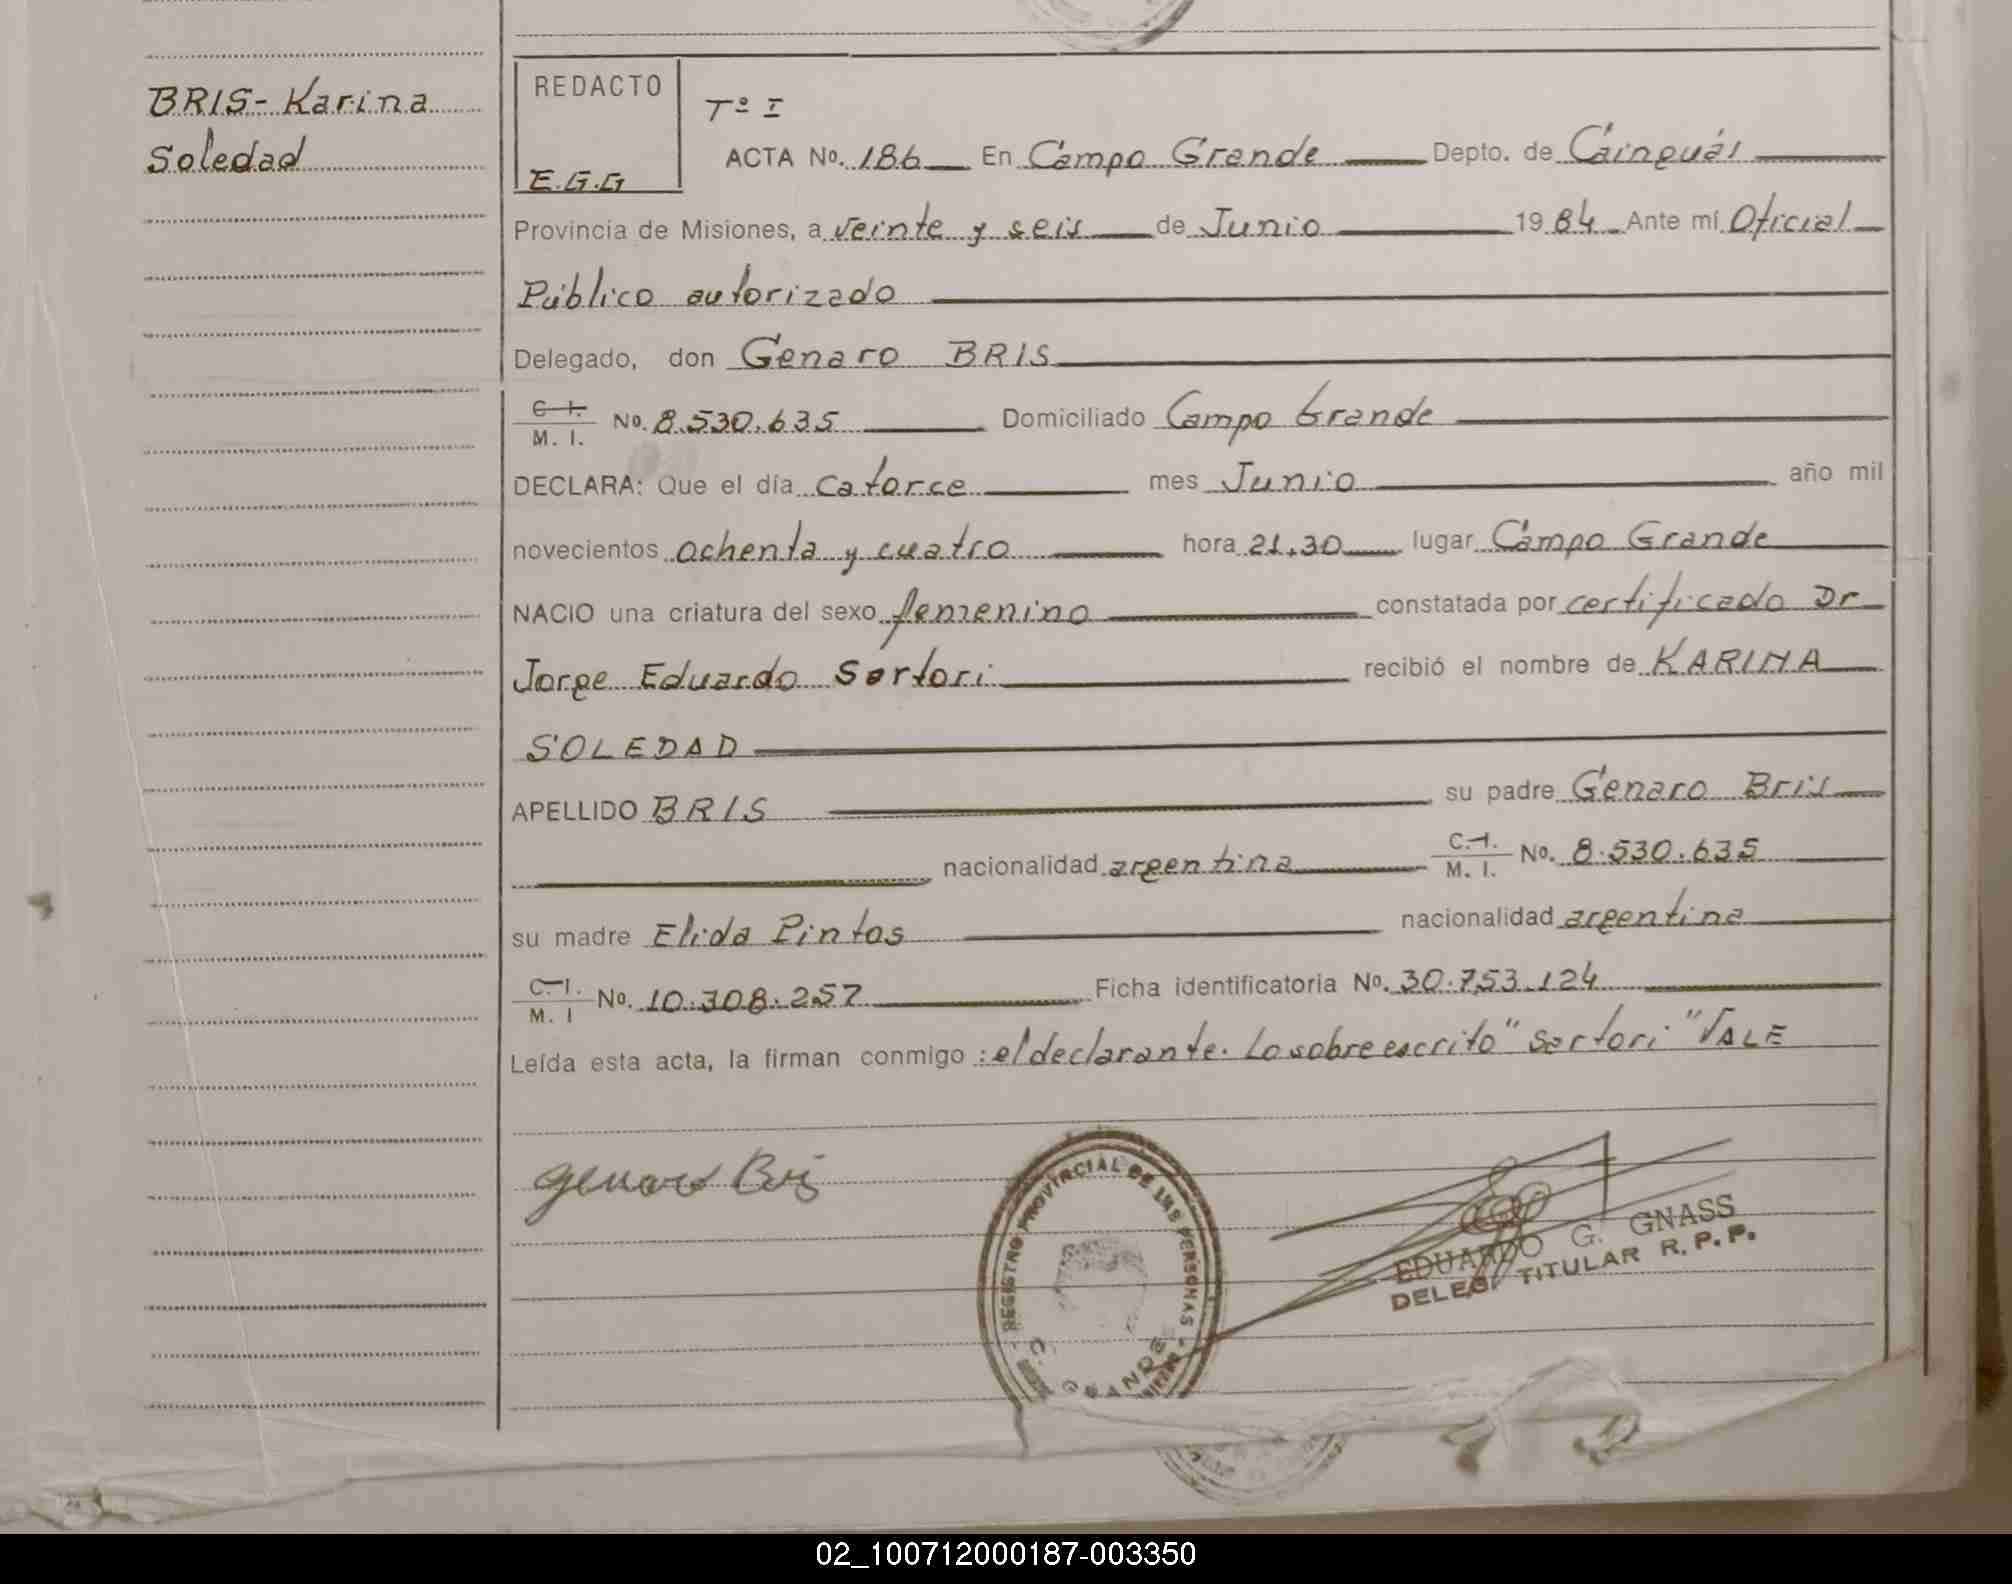 BRIS- Karina
Soledad
REDACTO
E.G.G
Tº I
ACTA No. 186 En Campo Grande Depto. de Cainguás
Provincia de Misiones, a veinte y seis de Junio 19 84 Ante mí Oficial
Público autorizado
Delegado, don Genaro BRIS
C. I.
M. I. No. 8.530.635 Domiciliado Campo Grande
DECLARA: Que el día catorce mes Junio año mil
novecientos ochenta y cuatro hora 21,30 lugar Campo Grande
NACIO una criatura del sexo femenino constatada por certificado Dr
Jorge Eduardo Sartori recibió el nombre de KARINA
SOLEDAD
APELLIDO BRIS su padre Genaro Bris
nacionalidad argentina C. I.
M. I. No. 8.530.635
su madre Elida Pintos nacionalidad argentina
C. I.
M. I No. 10.308.257 Ficha identificatoria No. 30.753.124
Leída esta acta, la firman conmigo : el declarante. Lo sobre escrito "Sartori" VALE
Genaro Bris
REGISTRO PROVINCIAL DE LAS PERSONAS
C. GRANDE
EDUARDO G. GNASS
DELEG. TITULAR R.P.P.
02_100712000187-003350